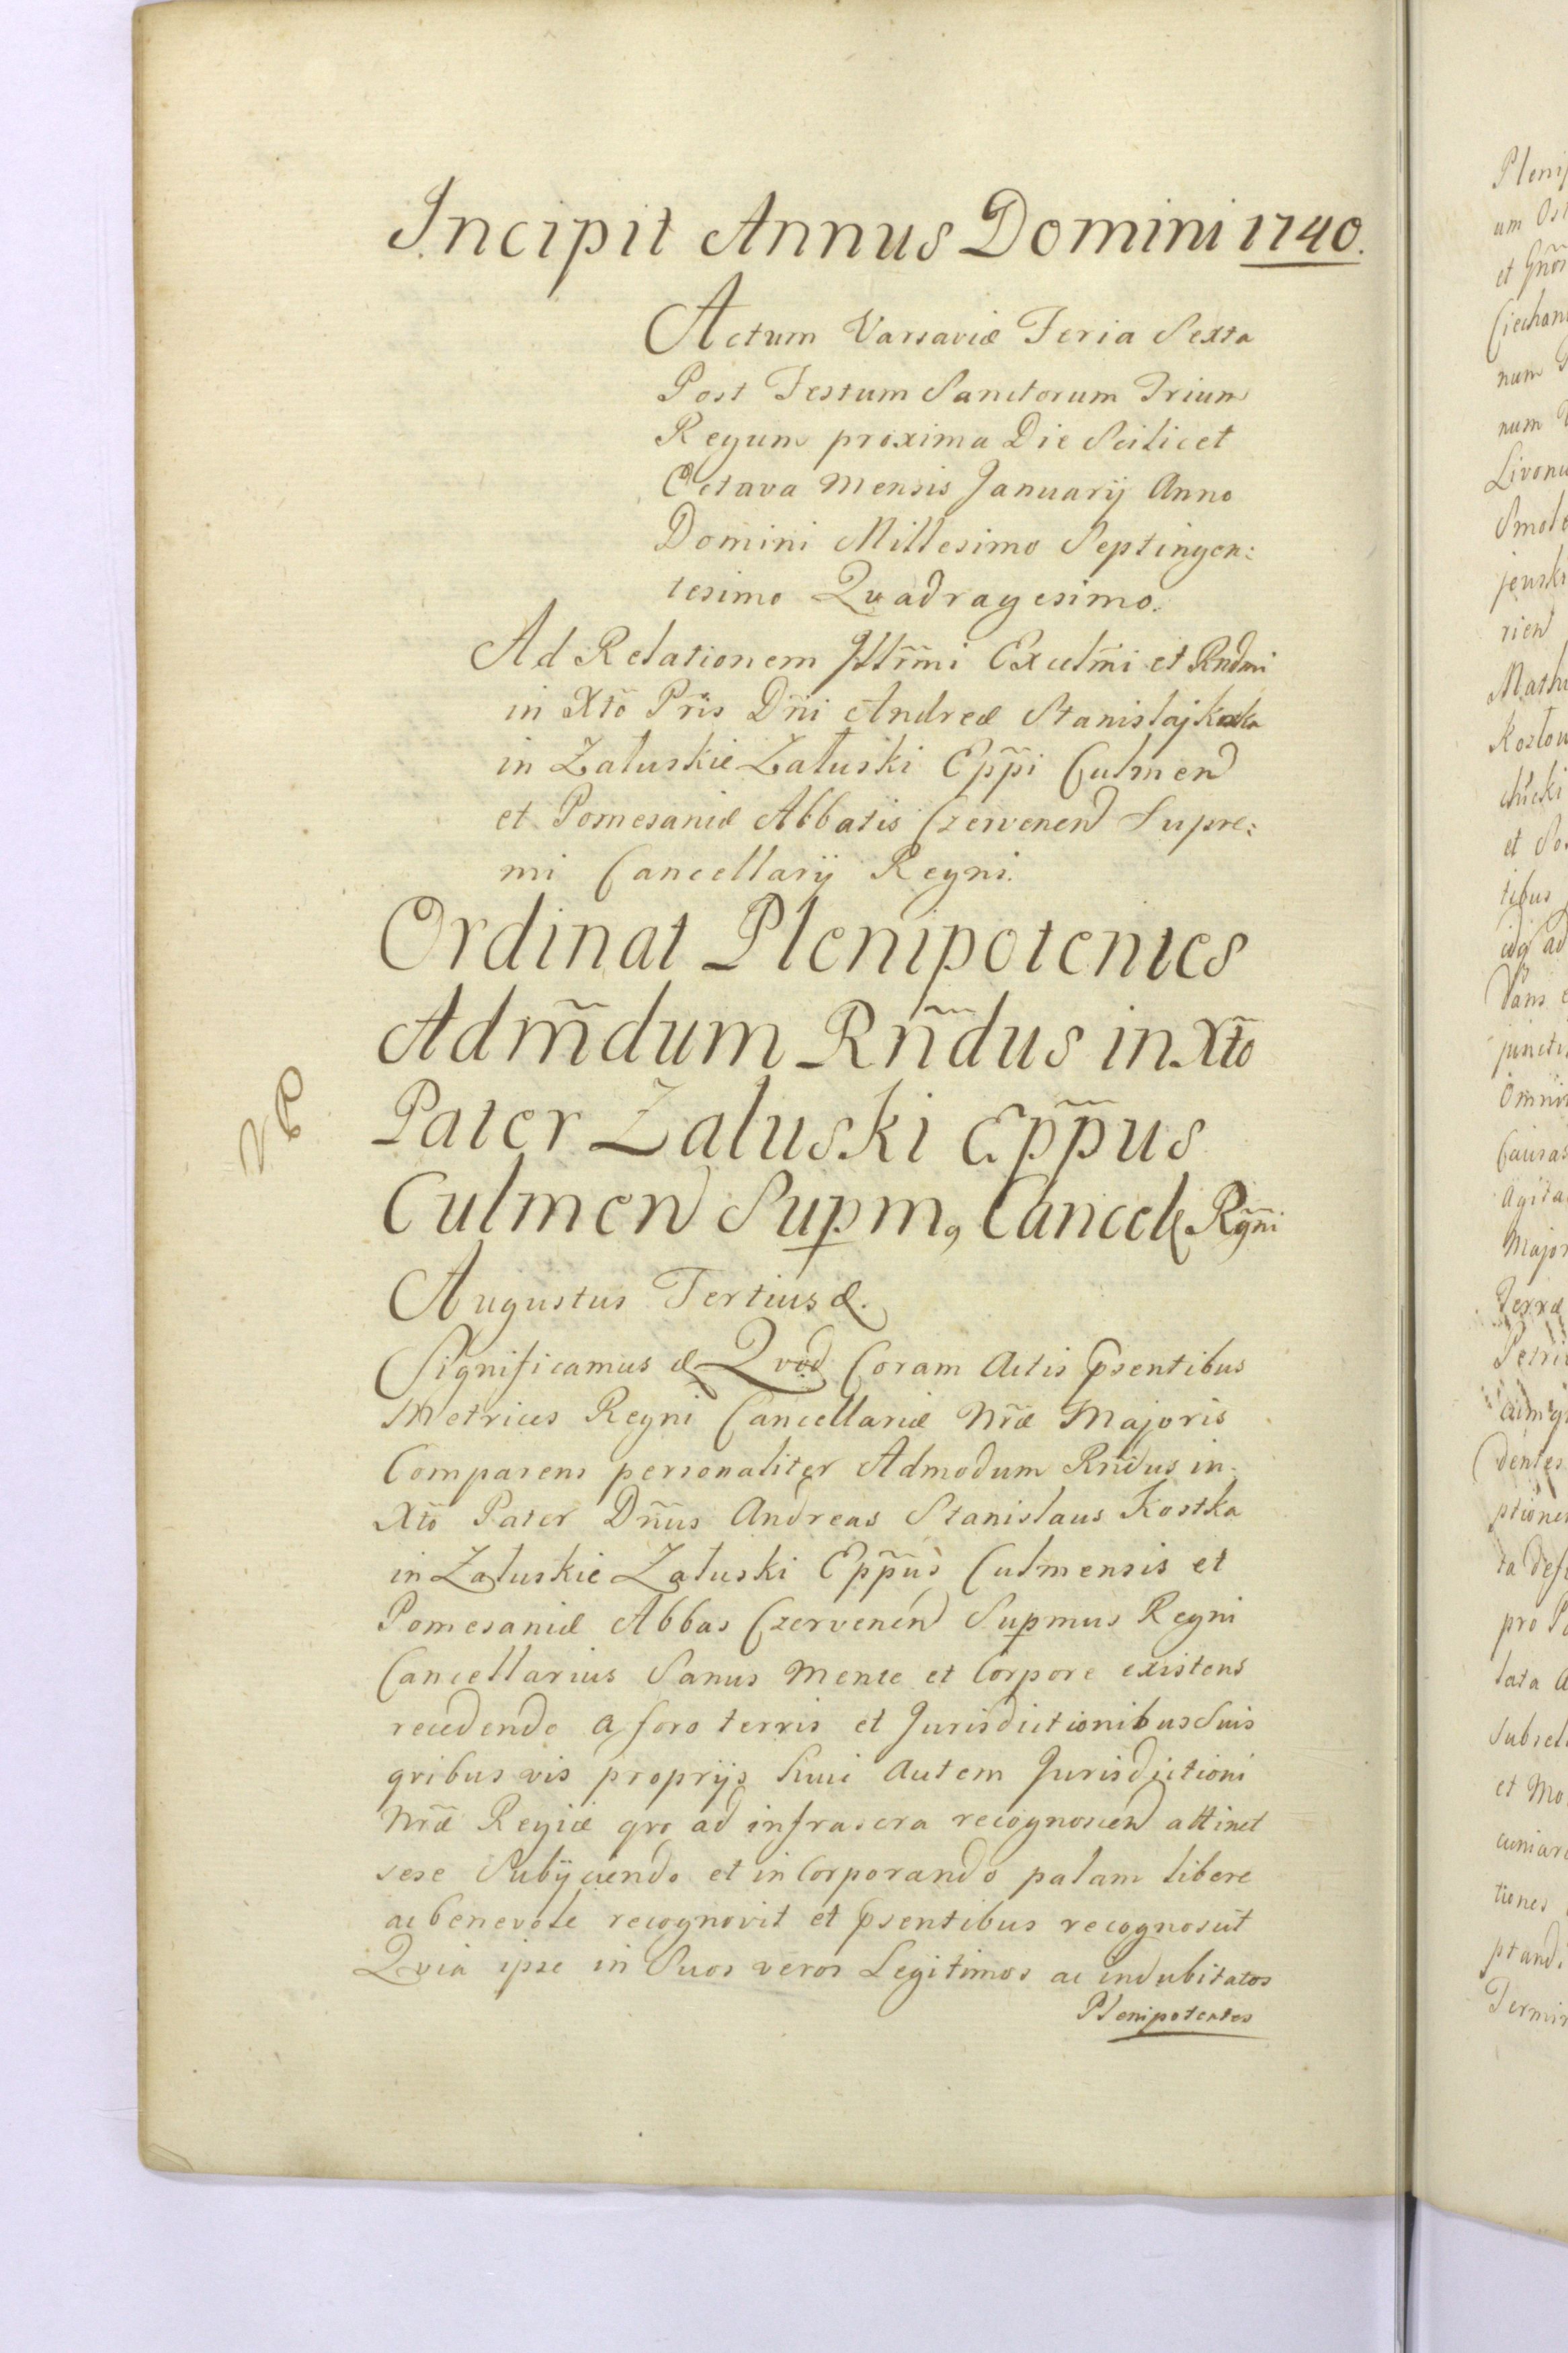 Incipit Annus Domini 1740.
Actum Varsaviæ Feria Sexta
Post Festum Sanctorum Trium
Regum proxima Die Scilicet
Octava Mensis Januarij Anno
Domini Millesimo Septingen:
tesimo Quadragesimo.
Ad Relationem Illr̃mi Excelm̃i et Rndmi
in Xtõ Pr̃is Dñi Andreæ Stanislaj Kostka
in Załuskie Załuski Epp̃i Culmen
et Pomesaniæ Abbatis Czervenen Supre:
mi Cancellarij Regni.
Ordinat Plenipotentes
Adm̃dum Rñdus in Xtõ
Pater Zaluski Epp̃us
Culmen Supm, Cancel Rgñi
Augustus Tertius &.
Significamus & Qvod Coram Actis p̃sentibus
Metrices Regni Cancellariæ Nr̃æ Majoris
Comparens personaliter Admodum Rndus in
Xtõ Pater Dñus Andreas Stanislaus Kostka
in Załuskie Załuski Epp̃us Culmensis et
Pomesaniæ Abbas Czervenen Supmus Regni
Cancellarius Sanus Mente et Corpore existens
recedendo a foro terris et Jurisdictionibus Suis
qvibusvis proprijs huic autem Jurisdictioni
Nr̃æ Regiæ qvo ad infrascra recognoscen attinet
sese Subijciendo et incorporando palam libere
ac benevole recognovit et p̃sentibus recognoscit
Qvia ipse in Suos veros Legitimos ac indubitatos
Plenipotentes
Pleni
um
et
num
num
Smol
rien
Math
et
tibus
ad
Causas
agita
Major
Terræ
dentes
ptione
pro
lata
et
tiones
Termi